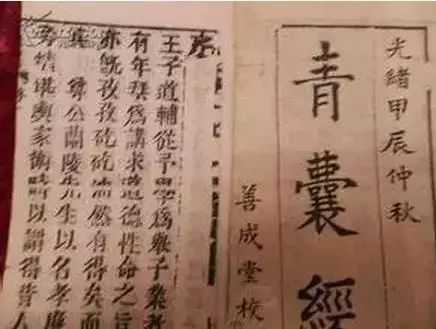 光緒甲辰仲秋
青囊經
善成堂校
序
王子道輔從予學爲舉子業者
有年矣爲講求道德性命之言
亦既孜孜矻矻油然有得矣而
尊公蘭陵先生以名孝廉
堪輿家術時以謂得昔人